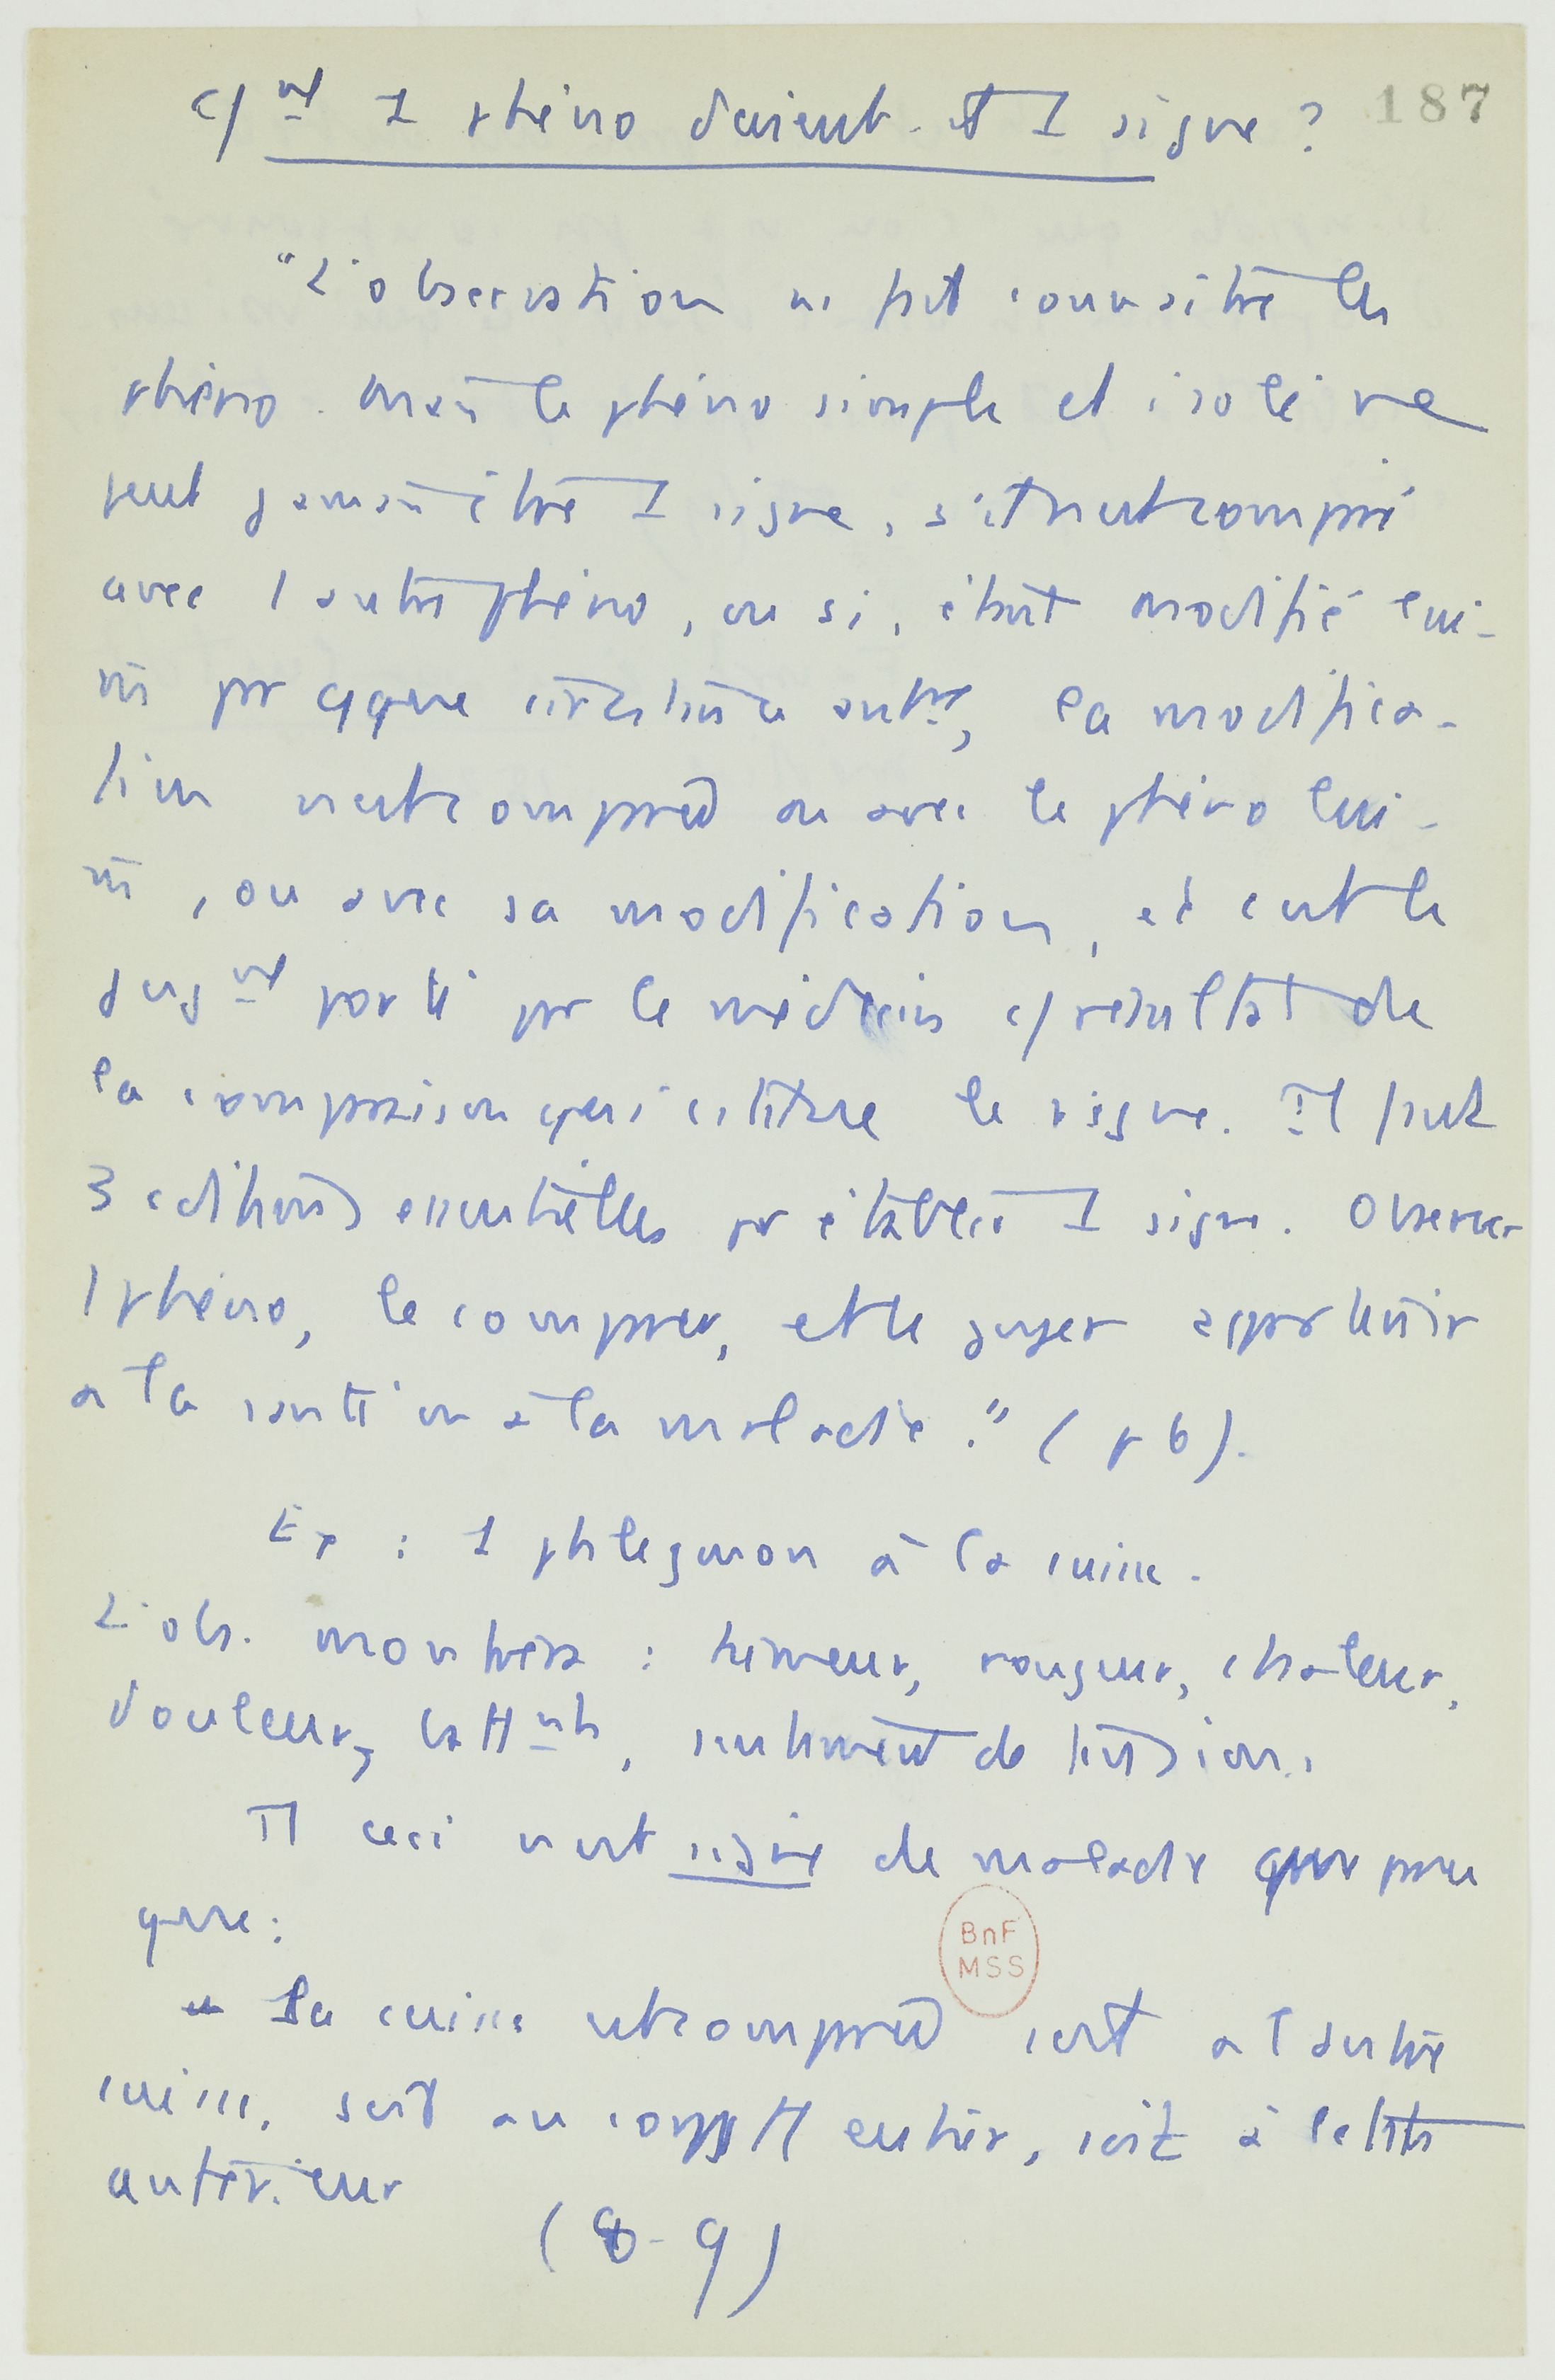 c/ nt 1 phéno devient-il 1 signe ? 187
"L'observation ns fait connaître les
phéno. Mais le phéno simple et isolé ne
peut jamais être 1 signe, s'il n'est comparé
avec 1 autre phéno, ou si, étant modifié lui-
m̄ pr qque circstance autre, la modifica-
tion n'est comparée ou avec le phéno lui-
m̄, ou avec sa modification, et c'est le
jugnt porté pr le médecin c/ résultat de
la comparaison qui cstitue le signe. Il faut
3 cditions essentielles pr établir 1 signe. Observer
1 phéno, le comparer, et le juger appartenir
à la santé ou à la maladie." (p 6).
Ex : 1 phlegmon à la cuisse.
L'obs. montrera : tumeur, rougeur, chaleur,
douleur, battnts, sentiment de tension.
Tt ceci n'est signe de maladie que parce
que :
- La cuisse est comparée soit à l'autre
cuisse, soit au corps tt entier, soit à l'état
antérieur
(8-9)
BnF
MSS